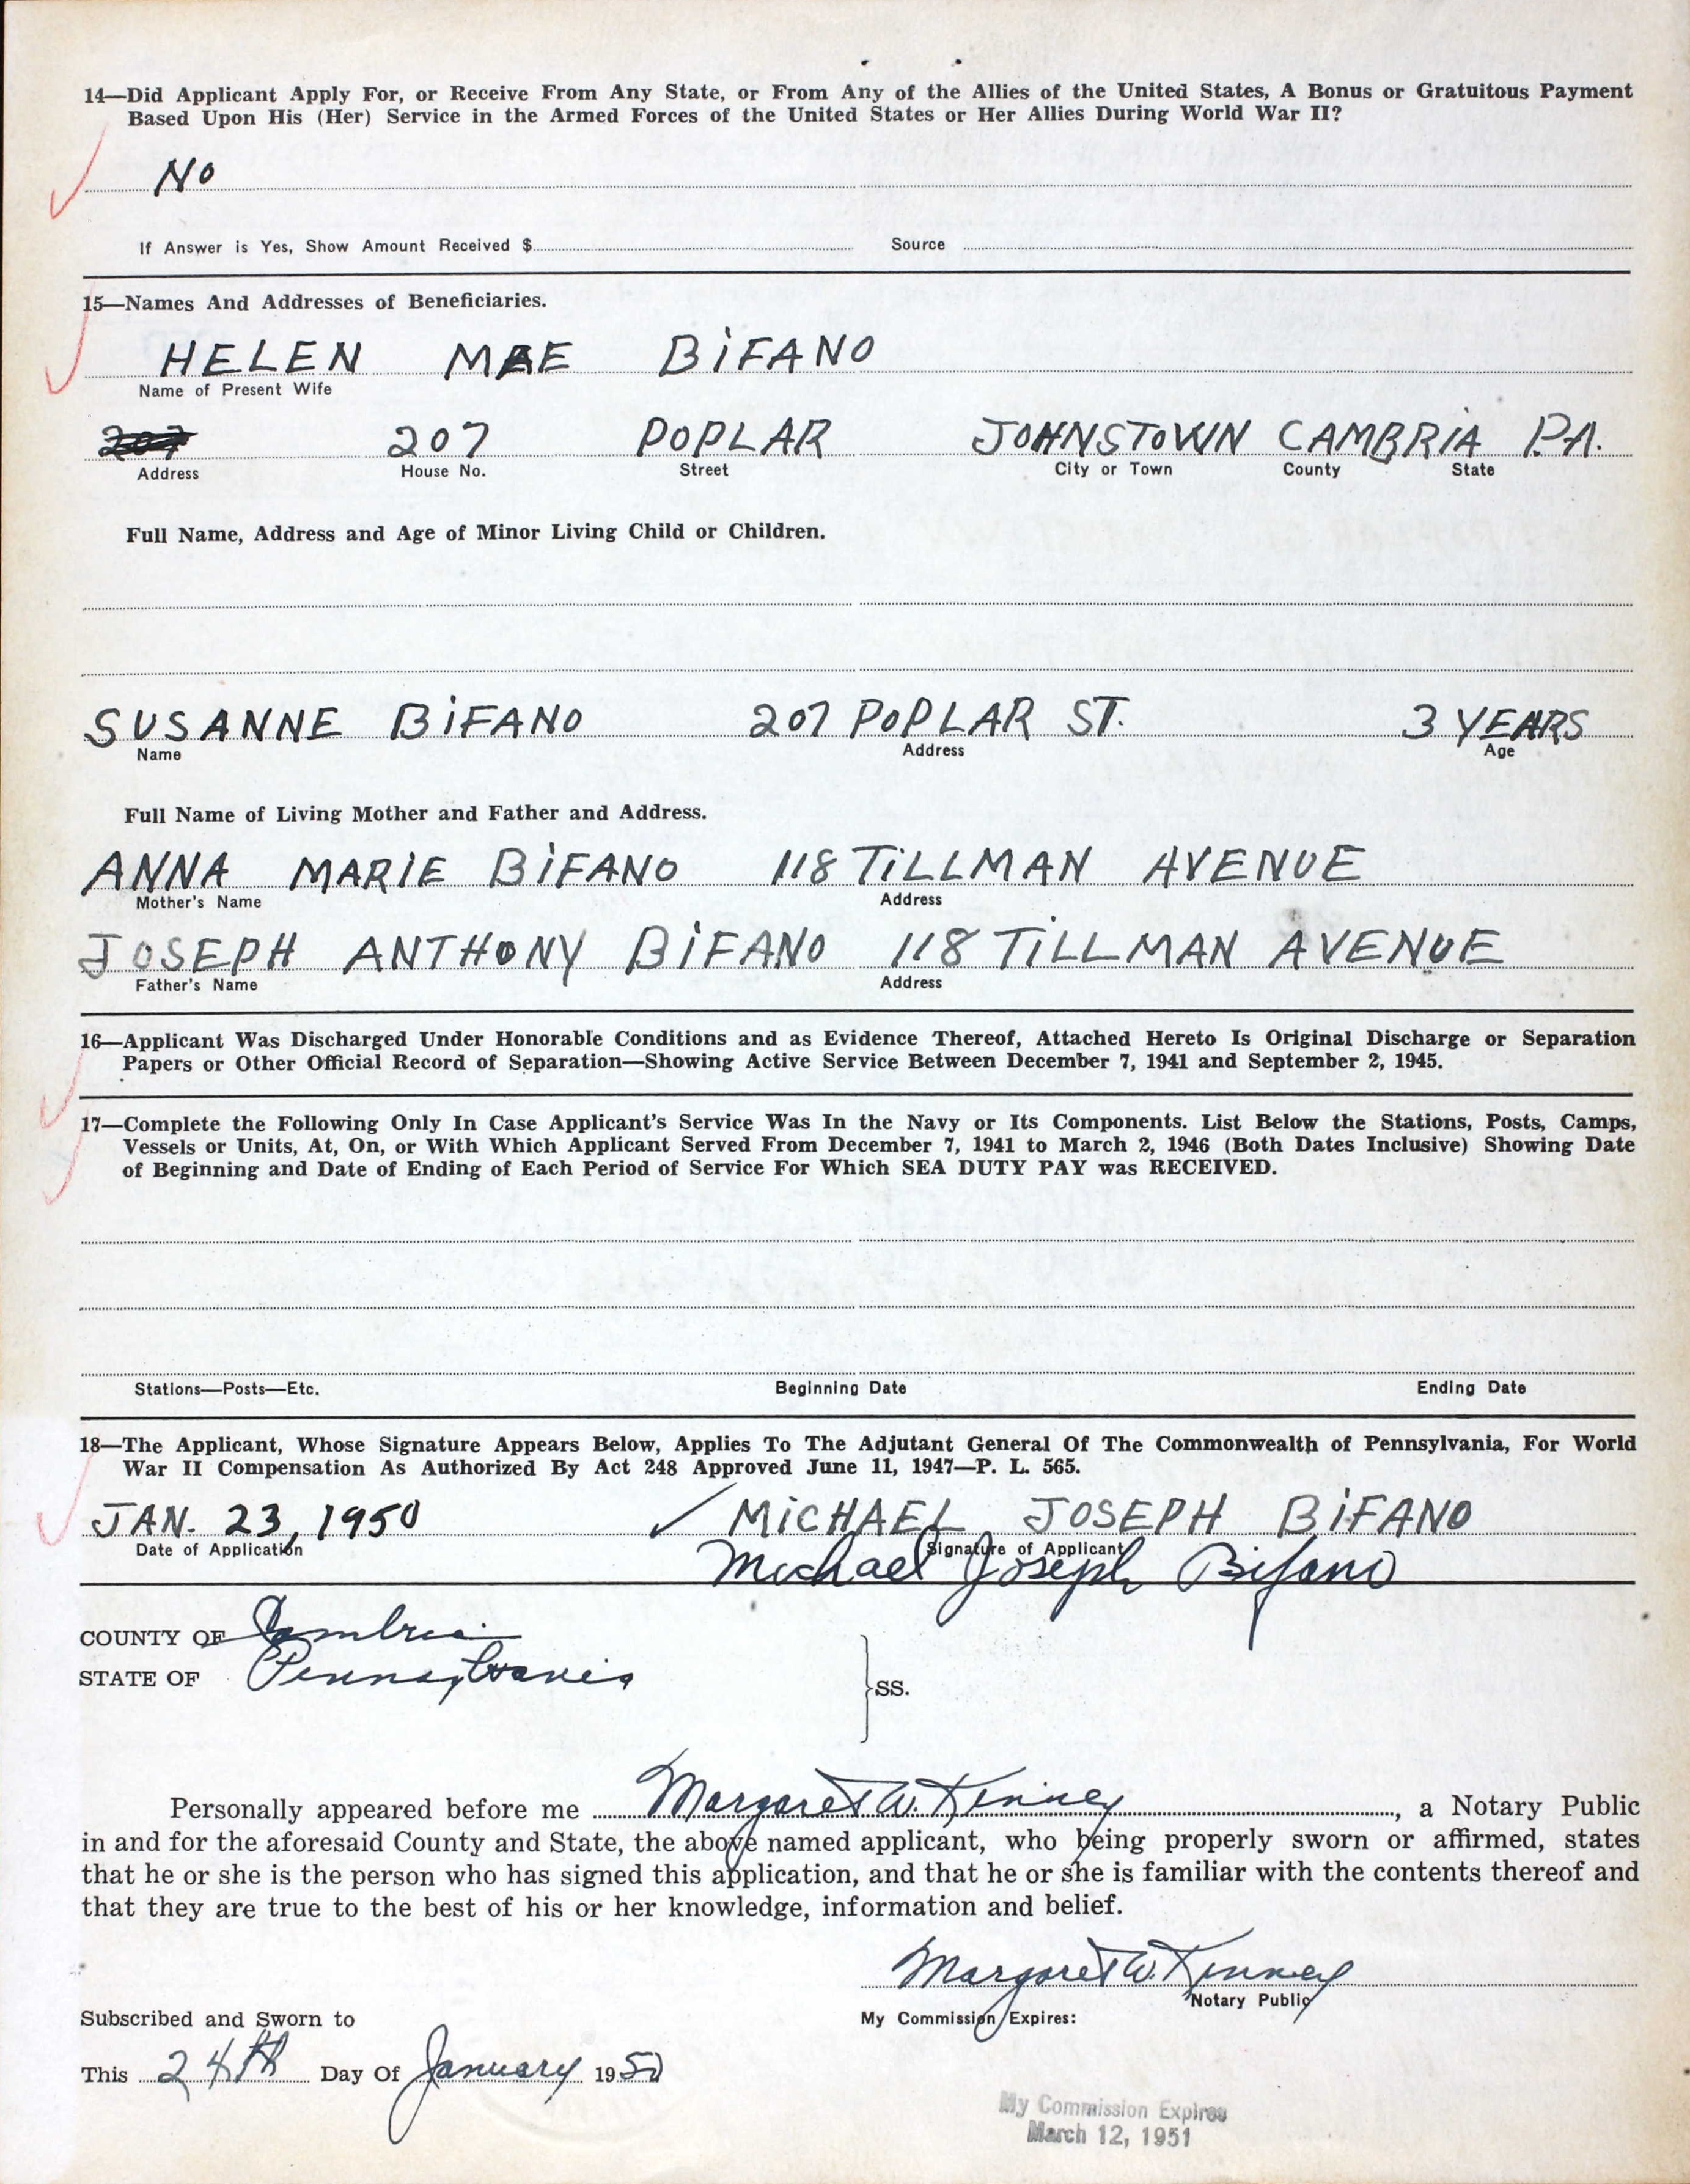 14—Did Applicant Apply For, or Receive From Any State, or From Any of the Allies of the United States, A Bonus or Gratuitous Payment
Based Upon His (Her) Service in the Armed Forces of the United States or Her Allies During World War II?
NO
If Answer is Yes, Show Amount Received $ Source
15—Names And Addresses of Beneficiaries.
HELEN MAE BiFANO
Name of Present Wife
207 207 POPLAR JOHNSTOWN CAMBRIA PA.
Address House No. Street City or Town County State
Full Name, Address and Age of Minor Living Child or Children.
SUSANNE BiFANO 207 POPLAR ST. 3 YEARS
Name Address Age
Full Name of Living Mother and Father and Address.
ANNA MARIE BiFANO 118 TiLLMAN AVENUE
Mother's Name Address
JOSEPH ANTHONY BiFANO 118 TiLLMAN AVENUE
Father's Name Address
16—Applicant Was Discharged Under Honorable Conditions and as Evidence Thereof, Attached Hereto Is Original Discharge or Separation
Papers or Other Official Record of Separation—Showing Active Service Between December 7, 1941 and September 2, 1945.
17—Complete the Following Only In Case Applicant's Service Was In the Navy or Its Components. List Below the Stations, Posts, Camps,
Vessels or Units, At, On, or With Which Applicant Served From December 7, 1941 to March 2, 1946 (Both Dates Inclusive) Showing Date
of Beginning and Date of Ending of Each Period of Service For Which SEA DUTY PAY was RECEIVED.
Stations—Posts—Etc. Beginning Date Ending Date
18—The Applicant, Whose Signature Appears Below, Applies To The Adjutant General Of The Commonwealth of Pennsylvania, For World
War II Compensation As Authorized By Act 248 Approved June 11, 1947—P. L. 565.
JAN. 23, 1950 MiCHAEL JOSEPH BiFANO
Date of Application Signature of Applicant
Michael Joseph Bifano
COUNTY OF Cambria
STATE OF Pennsylvania
SS.
Personally appeared before me Margaret W. Kinney, a Notary Public
in and for the aforesaid County and State, the above named applicant, who being properly sworn or affirmed, states
that he or she is the person who has signed this application, and that he or she is familiar with the contents thereof and
that they are true to the best of his or her knowledge, information and belief.
Margaret W. Kinney
Notary Public
Subscribed and Sworn to My Commission Expires:
This 24th Day Of January 1950
My Commission Expires
March 12, 1951